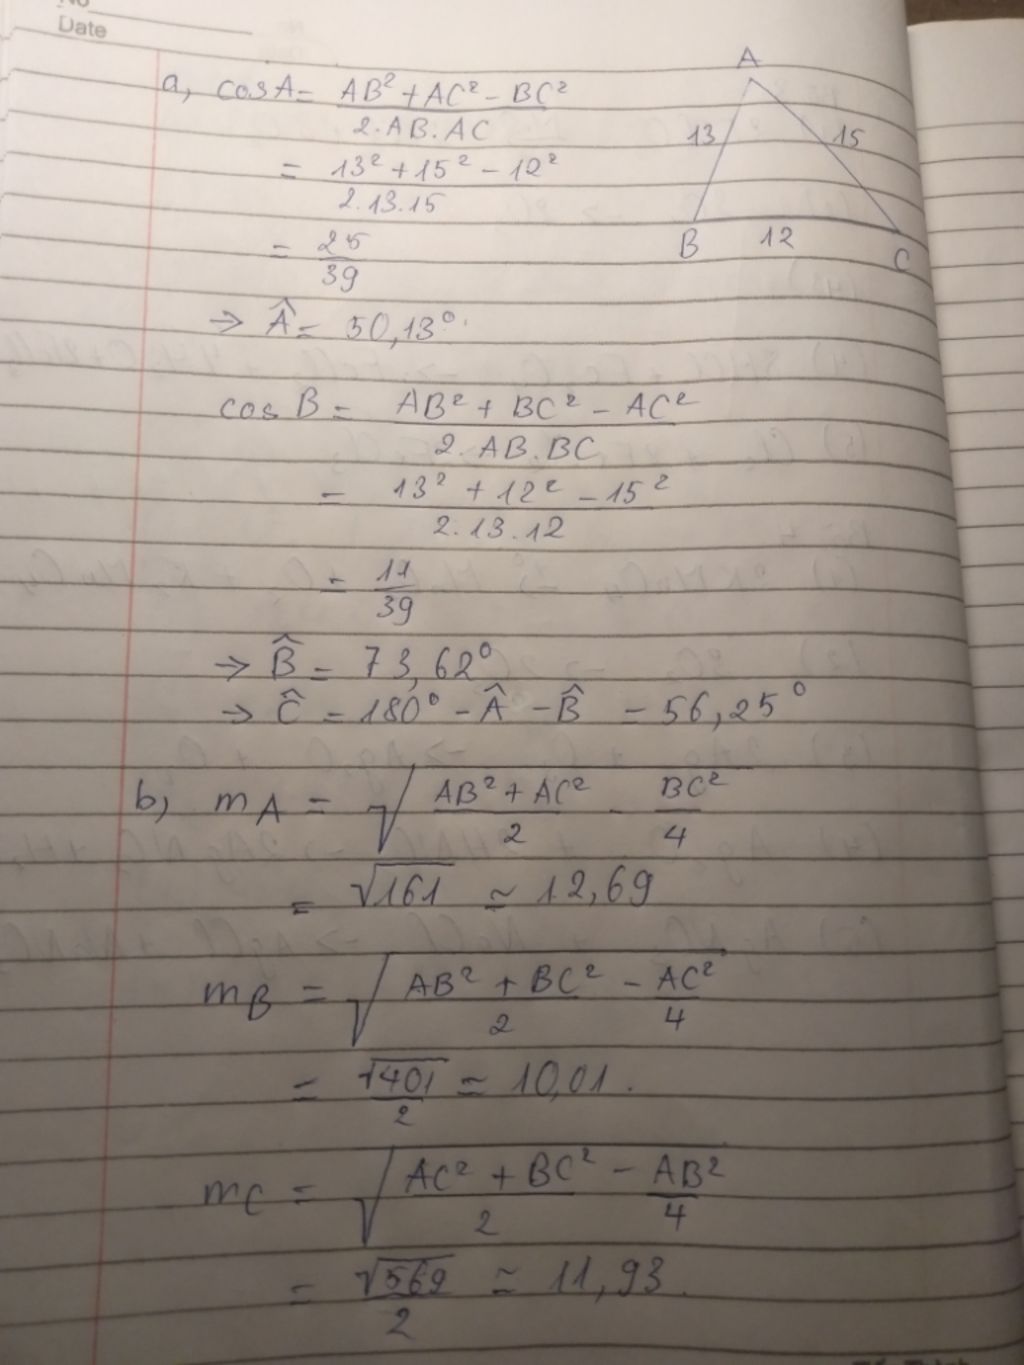 No
Date
a, cosA = AB² + AC² - BC² / 2.AB.AC
A
13
15
B
12
C
= 13² + 15² - 12² / 2.13.15
= 25 / 39
→ Â = 50,13°
cos B = AB² + BC² - AC² / 2.AB.BC
= 13² + 12² - 15² / 2.13.12
= 11 / 39
→ B̂ = 73,62°
→ Ĉ = 180° - Â - B̂ = 56,25°
b, mA = √(AB² + AC² / 2 - BC² / 4)
= √161 ≃ 12,69
mB = √(AB² + BC² / 2 - AC² / 4)
= √401 / 2 ≃ 10,01.
mC = √(AC² + BC² / 2 - AB² / 4)
= √569 / 2 ≃ 11,93.